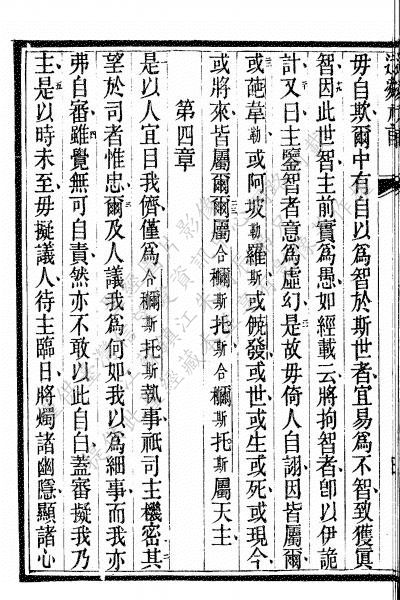 毋自欺爾中有自以為智於斯世者宜易為不智致獲眞
智因此世智主前實為愚如經載云將拘智者卽以伊詭
計又曰主鑒智者意為虛幻是故毋倚人自詡因皆屬爾
或葩韋勒或阿坡勒羅斯或觬發或世或生或死或現今
或將來皆屬爾爾屬合檷斯托斯合檷斯托斯屬天主
第四章
是以人宜目我儕僅為合檷斯托斯執事祇司主機密其
望於司者惟忠爾及人議我為何如我以為細事而我亦
弗自審雖覺無可自責然亦不敢以此自白蓋審擬我乃
主是以時未至毋擬議人待主臨日將燭諸幽隱顯諸心